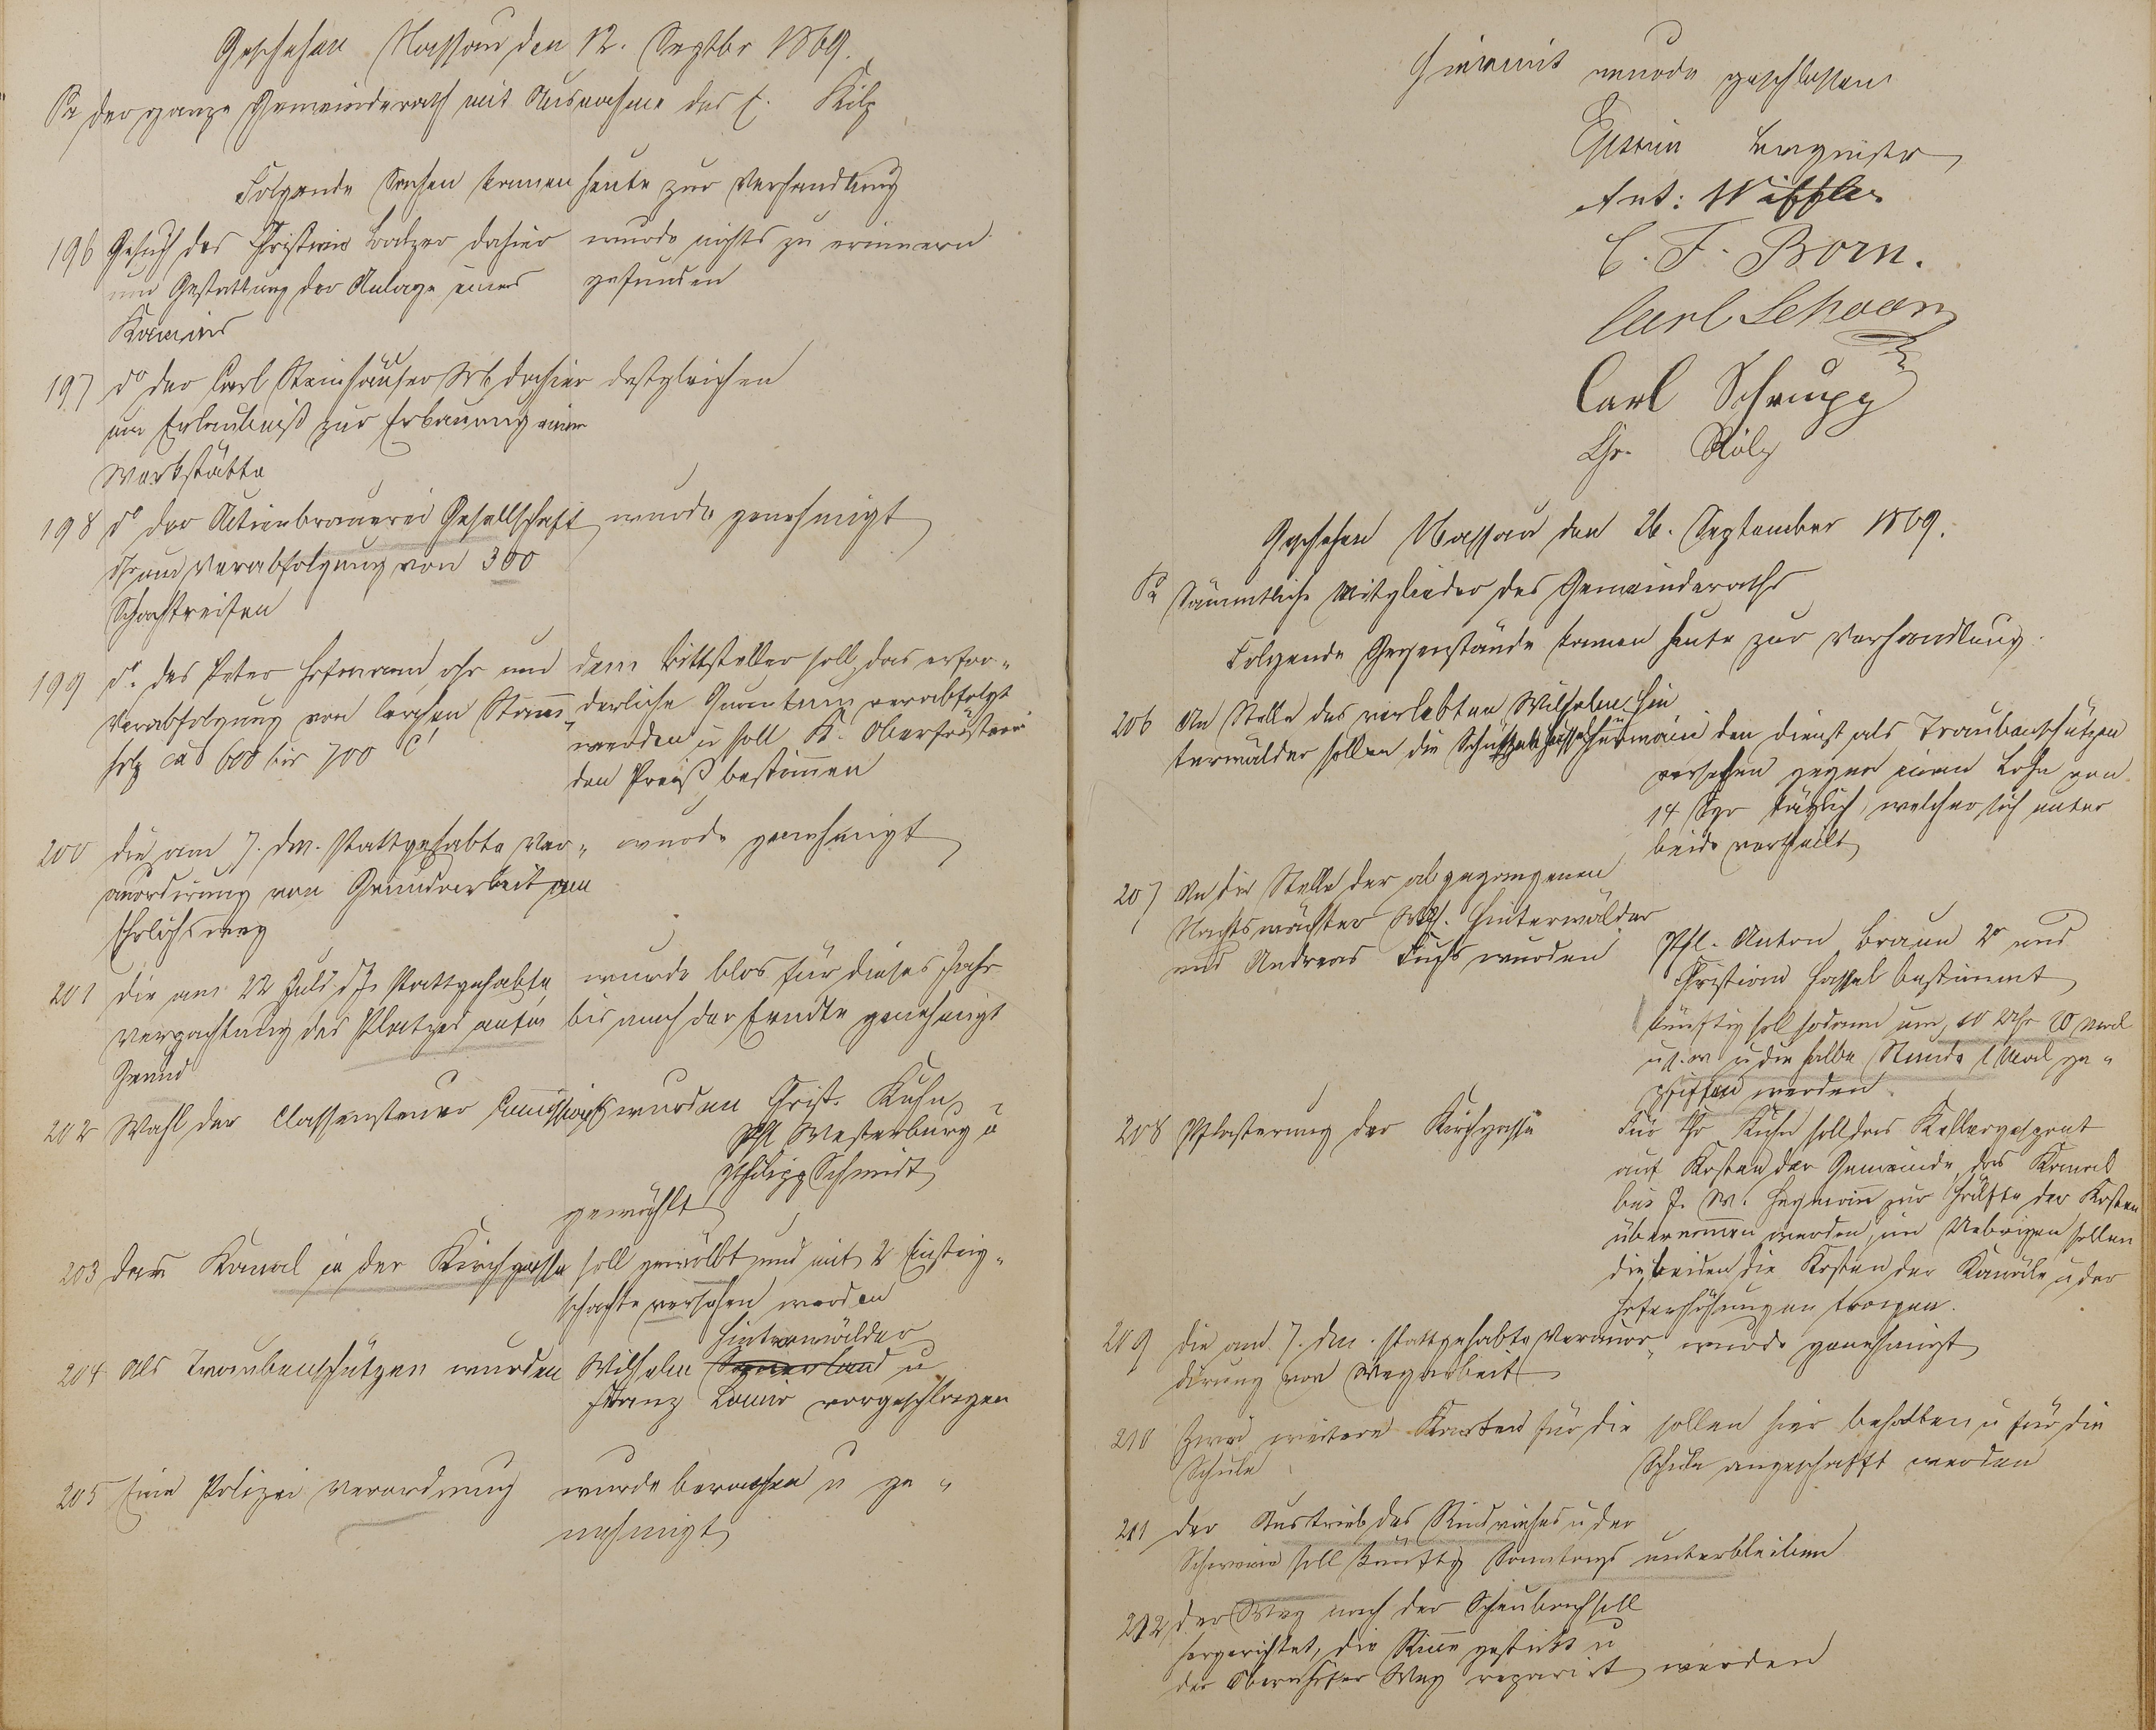 Geschehen Nassau den 12. Septbr 1869.
Pr der ganze Gemeinderath mit Ausnahme des C. Kilp
Folgende Sachen kamen heute zur Verhandlung
196 Gesuch des Christian Balzer dahier
um Gestattung der Anlage eines
Kamins
wurde nichts zu erinnern
gefunden
197 do der Carl Steinhäuser Wb dahier
um Erlaubniß zur Erbauung einer
Werkstätte
desgleichen
198 do der Actienbrauerei Gesellschaft
um Verabfolgung von 300
wurde genehmigt
199 do. des Peter Hofmann, um
Verabfolgung von lerchen Stam̄
holz ca 600 bis 700 C'
dem Bittsteller soll das erfor-
derliche Quantum verabfolgt
werden u soll K. Oberförsterei
den Preiß bestim̄en
200 die am 7. dM. stattgehabte Ver-
anordirung von Grundarbeit am
Ehrlichsweg
wurde genehmigt
201 die am 22 Juli dJs stattgehabte
Verpachtung des Platzes auf'm
Grund
wurde blos für dieses Jahr
bis nach der Erndte genehmigt
202 Wahl der Classensteuer Com̄ission
wurden Christ. Kuhn,
Phl Westerburg u
Philipp Schmidt
gewählt
203 der Kanal in der Kirchgasse
soll gewölbt und mit 2 Einsteig-
schachte versehen werden
204 Als Traubenschützen wurden
Hinterwälder
Wilhelm u
Franz Lanio vorgeschlagen
205 Eine Polizei Verordnung
wurde berathen u ge-
nehmigt
Hiermit wurde geschlossen
Bürgmstr
Ant:
C. F. Born.
Carl Schoan
Carl Schrupp
Chr. Költz
Geschehen Nassau den 26. September 1869.
Pr Sämmtliche Mitglieder des Gemeinderaths
Folgende Gegenstände kamen heute zur Verhandlung.
206 An Stelle des verlebten Wilhelm Hin
terwälder sollen die Schützen
den Dienst als Traubenschützen
versehen gegen einen Lohn von
14 Sgr täglich, welcher sich unter
beide vertheilt
207 An die Stelle der abgegangenen
Nachtswächter Wilh. Hinterwälder
und Andreas Fuchs wurden
Phl. Anton Braun 2r und
Christian Hassel bestimmt
künftig soll sodann um 10 Uhr 10 Mal
u.s.w u die halbe Stunde 1 Mal ge-
pfiffen werden
208 Pflasterung der Kirchgasse
Für Chr Kuhn soll das
auf Kosten der Gemeinde, des Kanal
bei J. W. Heymann zur Hälfte der Kosten
übernom̄en werden, im Uebrigen sollen
die beiden die Kosten der Kanäle u der
tragen.
209 die am 7. dM. stattgehabte Veranor-
dirung von Wegarbeit
wurde genehmigt
210 Zwei weitere Karten für die
Schule
sollen hier behalten u für die
Schule angeschafft werden
211 der Austrieb des Rindviehes u der
Schweine soll künftig Sonntags unterbleiben
212 der Weg nach der soll
hergerichtet, die Rinne gestickt u
der Obernhöfer Weg reparirt werden